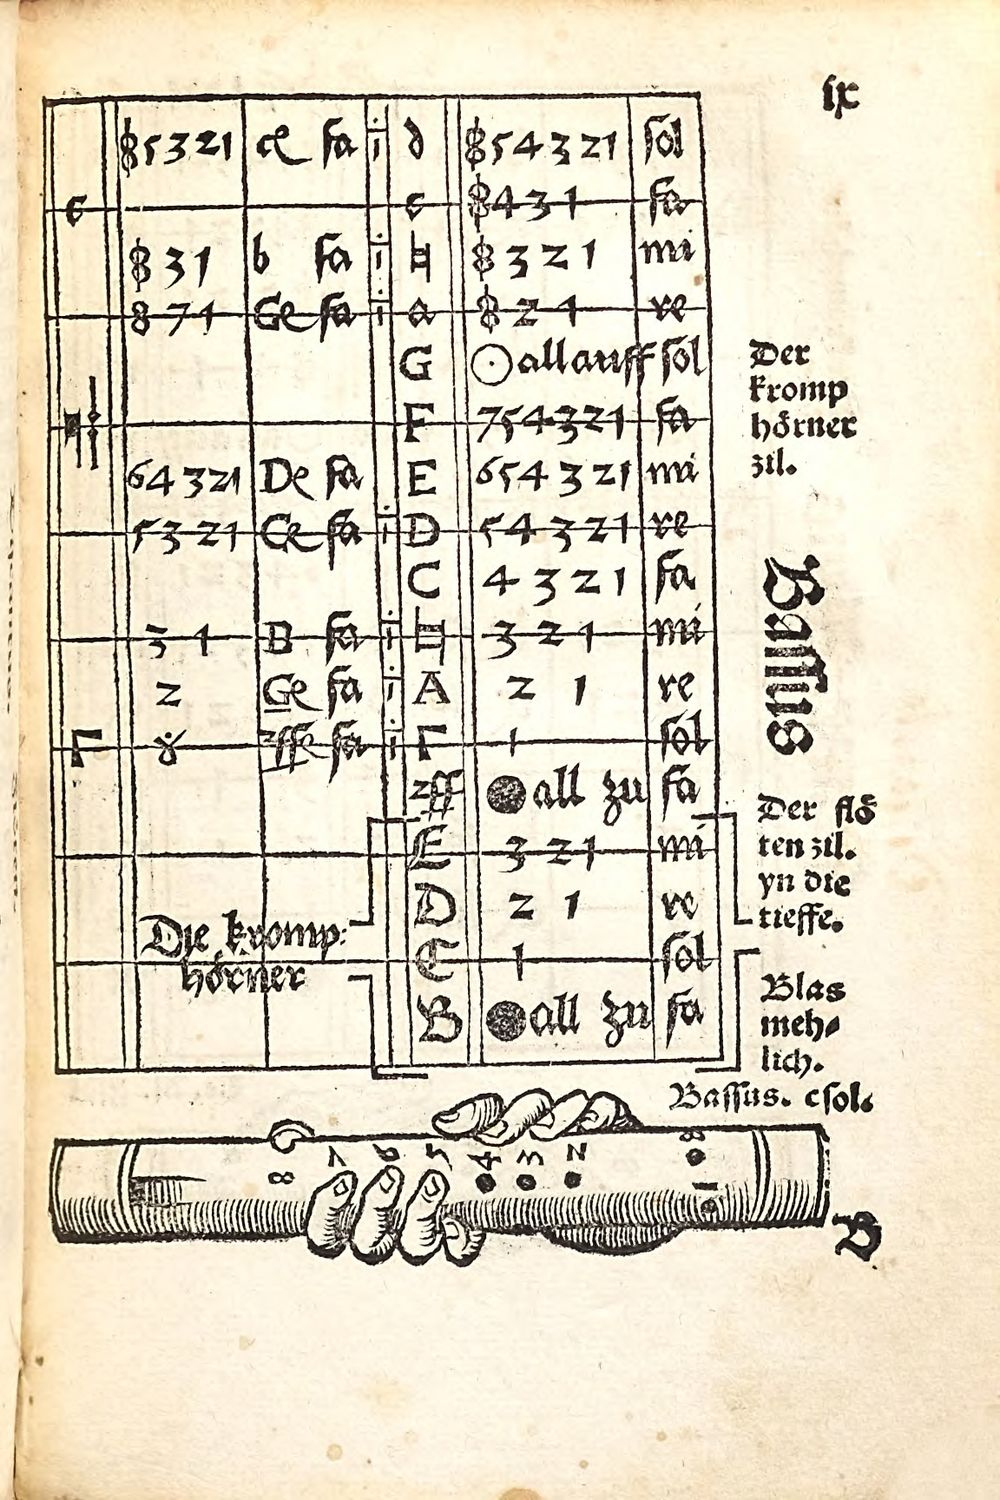 ix
8 5 3 2 1 ce fa i d 8 5 4 3 2 1 sol
c c 8 4 3 1 fa
8 3 1 b fa i ♮ 8 3 2 1 mi
8 7 1 Ge fa i a 8 2 1 re
G all auff sol
F 7 5 4 3 2 1 fa
6 4 3 2 1 De fa E 6 5 4 3 2 1 mi
5 3 2 1 Ce fa i D 5 4 3 2 1 re
C 4 3 2 1 fa
3 1 B fa i ♮ 3 2 1 mi
2 Ge fa i A 2 1 re
Γ 8 ff e fa i Γ 1 sol
ff all zu fa
E 3 2 1 mi
D 2 1 re
C 1 sol
B all zu fa
Die kromp:
hörner
Der
kromp
hörner
zil.
Bassus
Der flö
ten zil.
yn die
tieffe.
Blas
meh⸗
lich.
Bassus. csol.
8 7 6 5 4 3 2 8 1
B